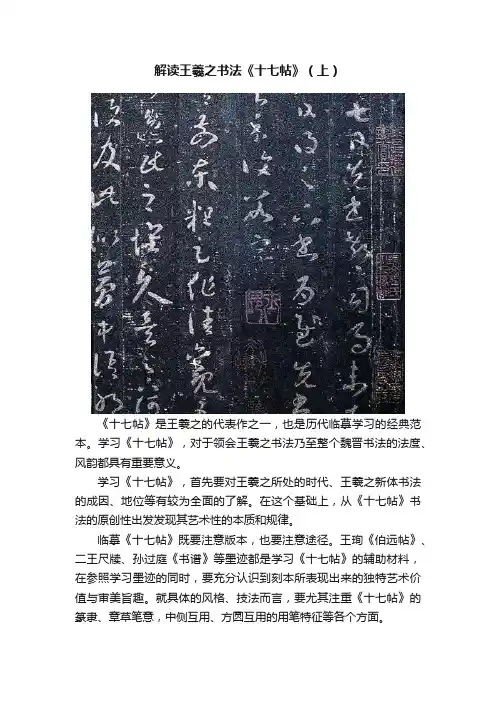 解读王羲之书法《十七帖》（上）
七日先書郗司馬未
日得足下書為慰先書
具示復數字
前東粗足作佳觀
民之懷久矣足下何
復及此似夢中語
《十七帖》是王羲之的代表作之一，也是历代临摹学习的经典范
本。学习《十七帖》，对于领会王羲之书法乃至整个魏晋书法的法度、
风韵都具有重要意义。
学习《十七帖》，首先要对王羲之所处的时代、王羲之新体书法
的成因、地位等有较为全面的了解。在这个基础上，从《十七帖》书
法的原创性出发发现其艺术性的本质和规律。
临摹《十七帖》既要注意版本，也要注意途径。王珣《伯远帖》、
二王尺牍、孙过庭《书谱》等墨迹都是学习《十七帖》的辅助材料，
在参照学习墨迹的同时，要充分认识到刻本所表现出来的独特艺术价
值与审美旨趣。就具体的风格、技法而言，要尤其注重《十七帖》的
篆隶、章草笔意，中侧互用、方圆互用的用笔特征等各个方面。